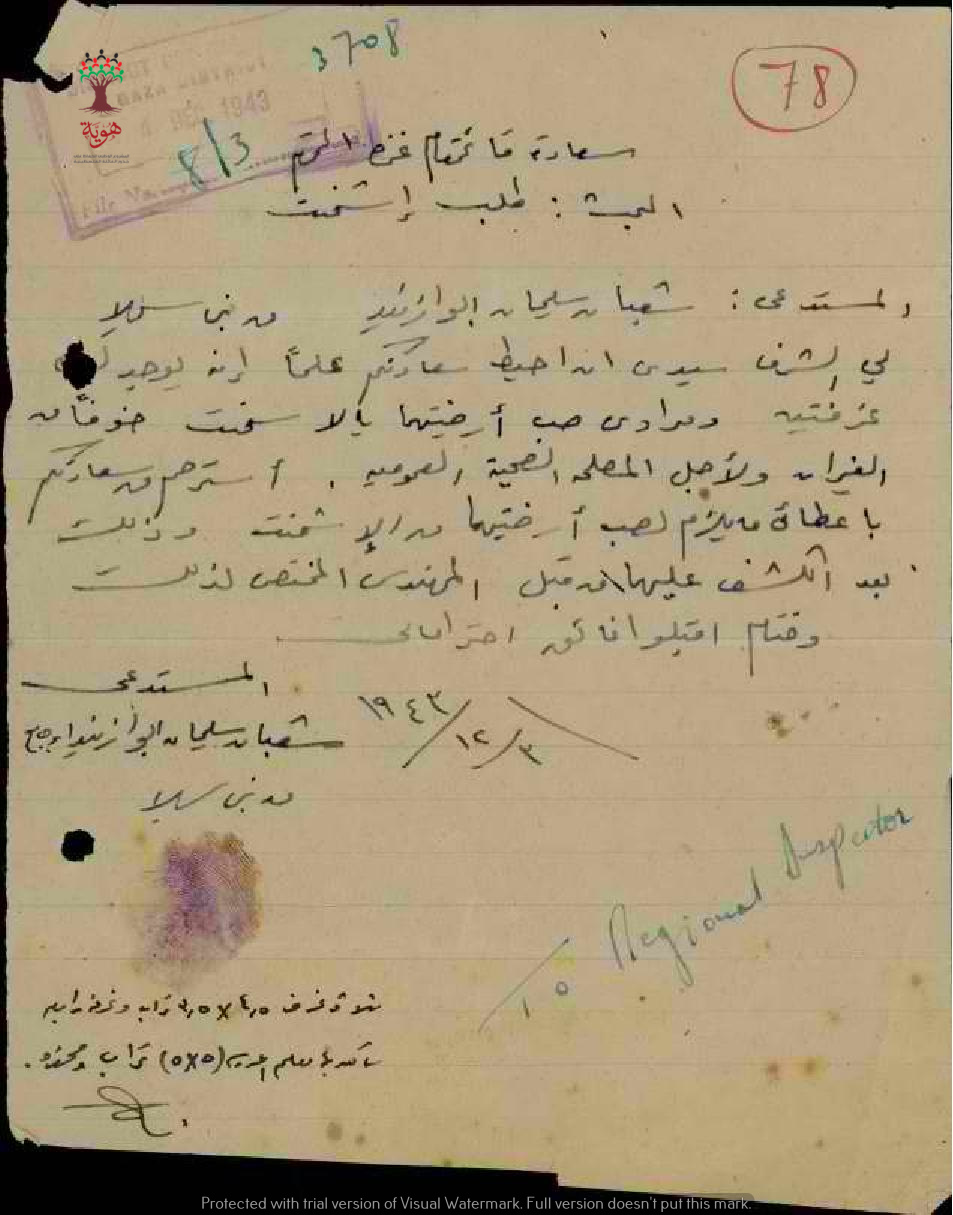 3708
78
GAZA DISTRICT
DEC 1943
File No.
8/3
هوية
سعادة قائمقام غزه المحترم
البحث : طلب إشمنت
المستدعي : شعبان سليمان ابو ازنيد من بني سهيلا
لي الشرف سيدي ان احيط سعادتكم علماً إنه يوجد
غرفتين ومرادي صب أرضيتهما بالاسمنت خوفاً من
الفيران ولأجل المصلحه الصحية العموميه . أسترحم من سعادتكم
باعطائي ما يلزم لصب أرضيتهما من الإشمنت وذلك
بعد الكشف عليهما من قبل المهندس المختص لذلك
وختام اقبلوا فائق احترامي
المستدعي
شعبان سليمان ابو ازنيد
من بني سهيلا
١٩٤٣/١٢/٣
To Regional Inspector
ثلاثة غرف ٤,٥ × ٣,٥ تراب وغرفه رابعه
(٥×٥) تراب
Protected with trial version of Visual Watermark. Full version doesn't put this mark.